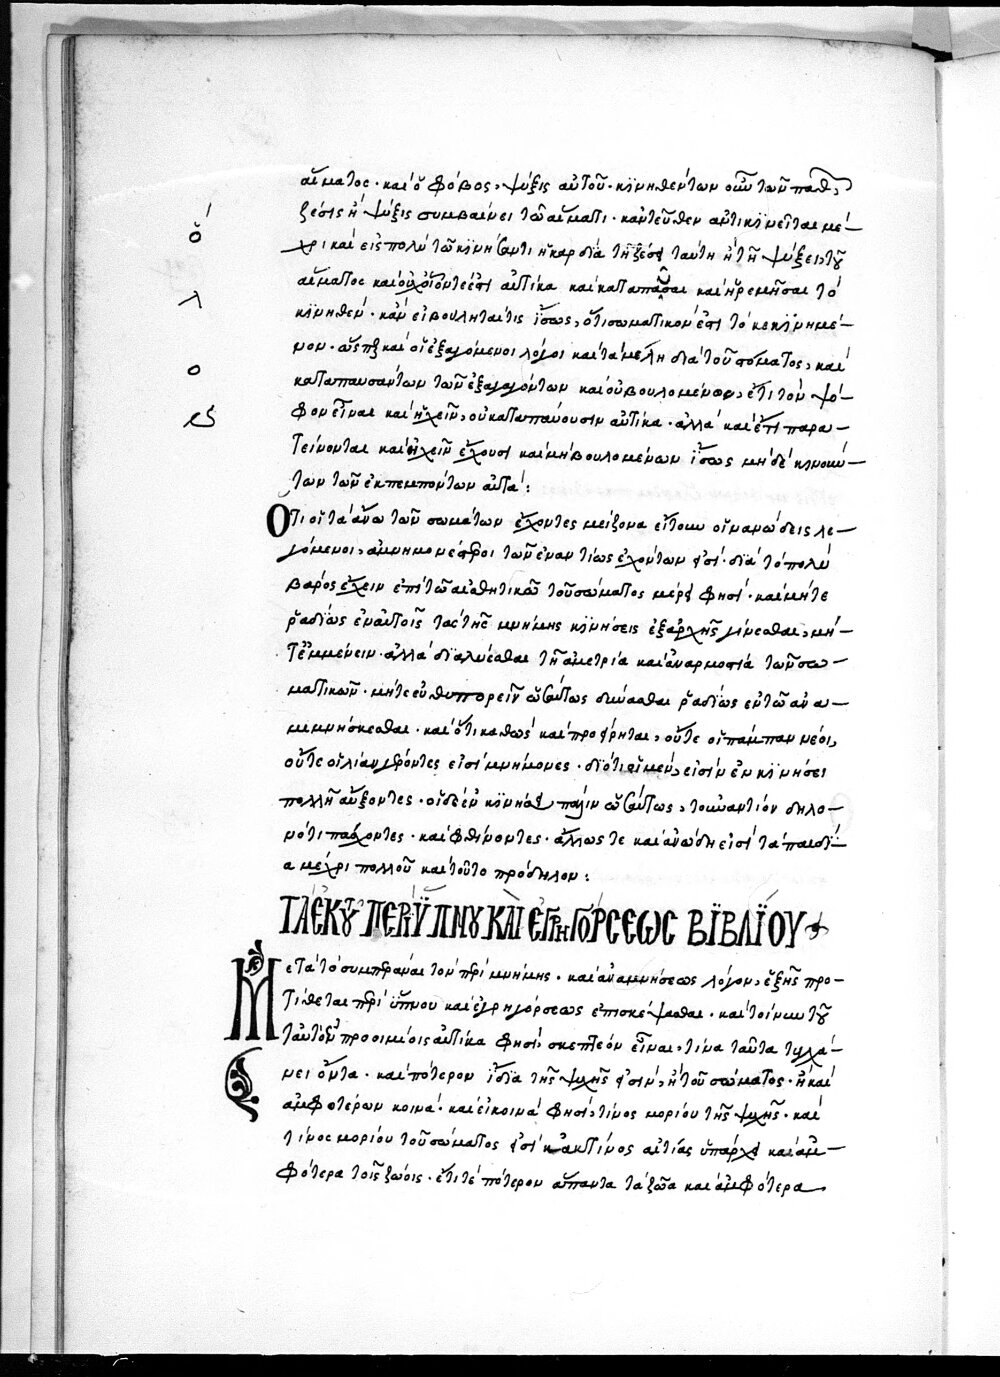 αἵματος· καὶ ὁ φόβος, ψύξις αὐτοῦ· κινηθέντων οὖν τῶν παθῶν,
ζέσις ἢ ψύξις συμβαίνει τῷ αἵματι· κἀντεῦθεν ἀντικινεῖται μέ-
χρι καὶ εἰς πολὺ τῷ κινήσαντι ἡ καρδία τῇ ζέσει ταύτῃ ἢ τῇ ψύξει τοῦ
αἵματος καὶ οὐχ οἷόν τέ ἐστι αὐτίκα καὶ καταπαῦσαι καὶ ἠρεμῆσαι τὸ
κινηθέν· κἂν εἰ βούληταί τις ἴσως, ὅτι σωματικόν ἐστι τὸ κεκινημέ-
νον· ὥσπερ καὶ οἱ ἐξαγόμενοι λόγοι καὶ τὰ μέλη διὰ τοῦ στόματος, καὶ
καταπαυσάντων τῶν ἐξαγαγόντων καὶ οὐ βουλομένων, ἔτι τὸν ψό-
φον εἶναι καὶ ἠχεῖν, οὐ καταπαύουσιν αὐτίκα· ἀλλὰ καὶ ἔτι παρα-
τείνονται καὶ ἠχεῖν ἔχουσι καὶ μὴ βουλομένων ἴσως μηδὲ κινούν-
των τῶν ἐκπεμπόντων αὐτά:
Ὅτι οἱ τὰ ἄνω τῶν σωμάτων ἔχοντες μείζονα εἴτουν οἱ νανώδεις λε-
γόμενοι, ἀμνημονέστεροι τῶν ἐναντίως ἐχόντων εἰσί· διὰ τὸ πολὺ
βάρος ἔχειν ἐπὶ τῷ αἰσθητικῷ τοῦ σώματος μέρει φησί· καὶ μήτε
ῥᾳδίως ἐν αὐτοῖς τὰς τῆς μνήμης κινήσεις ἐξαρχῆς γίνεσθαι, μή-
τ' ἐμμένειν· ἀλλὰ διαλύεσθαι τῇ ἀμετρίᾳ καὶ ἀναρμοστίᾳ τῶν σω-
ματικῶν· μήτε εὐθυπορεῖν ὡσαύτως δύνασθαι ῥᾳδίως ἐν τῷ ἀνα-
μιμνήσκεσθαι· καὶ ὅτι καθὼς καὶ προείρηται, οὔτε οἱ πάμπαν νέοι,
οὔτε οἱ λίαν γέροντες εἰσὶ μνήμονες· διότι οἱ μέν, εἰσὶν ἐν κινήσει
πολλῇ αὔξοντες· οἱ δὲ ἐν κινήσει πάλιν ὡσαύτως, τοὐναντίον δηλο-
νότι πάσχοντες· καὶ φθίνοντες· ἄλλως τε καὶ νανώδη εἰσὶ τὰ παιδί-
α μέχρι πολλοῦ καὶ τοῦτο πρόδηλον:
ΤΑ ἘΚ ΤΟΥ ΠΕΡῚ ὝΠΝΟΥ ΚΑῚ ἘΓΡΗΓΌΡΣΕΩΣ ΒΙΒΛΊΟΥ
Μετὰ τὸ συμπερᾶναι τὸν περὶ μνήμης· καὶ ἀναμνήσεως λόγον, ἑξῆς προ-
τίθεται περὶ ὕπνου καὶ ἐγρηγόρσεως ἐπισκέψασθαι· καὶ τοίνυν τοῦ
τοιούτου προοιμίοις αὐτίκα φησί, σκεπτέον εἶναι, τίνα ταῦτα τυγχά-
νει ὄντα· καὶ πότερον ἴδια τῆς ψυχῆς εἰσίν, ἢ τοῦ σώματος· ἢ καὶ
ἀμφοτέρων κοινά· καὶ εἰ κοινά φησί, τίνος μορίου τῆς ψυχῆς· καὶ
τίνος μορίου τοῦ σώματος εἰσὶ κἀκ τίνος αἰτίας ὑπάρχει καὶ ἀμ-
φότερα τοῖς ζῴοις· ἔτι τε πότερον ἅπαντα τὰ ζῷα καὶ ἀμφότερα
ὅ
λ
ο
ς